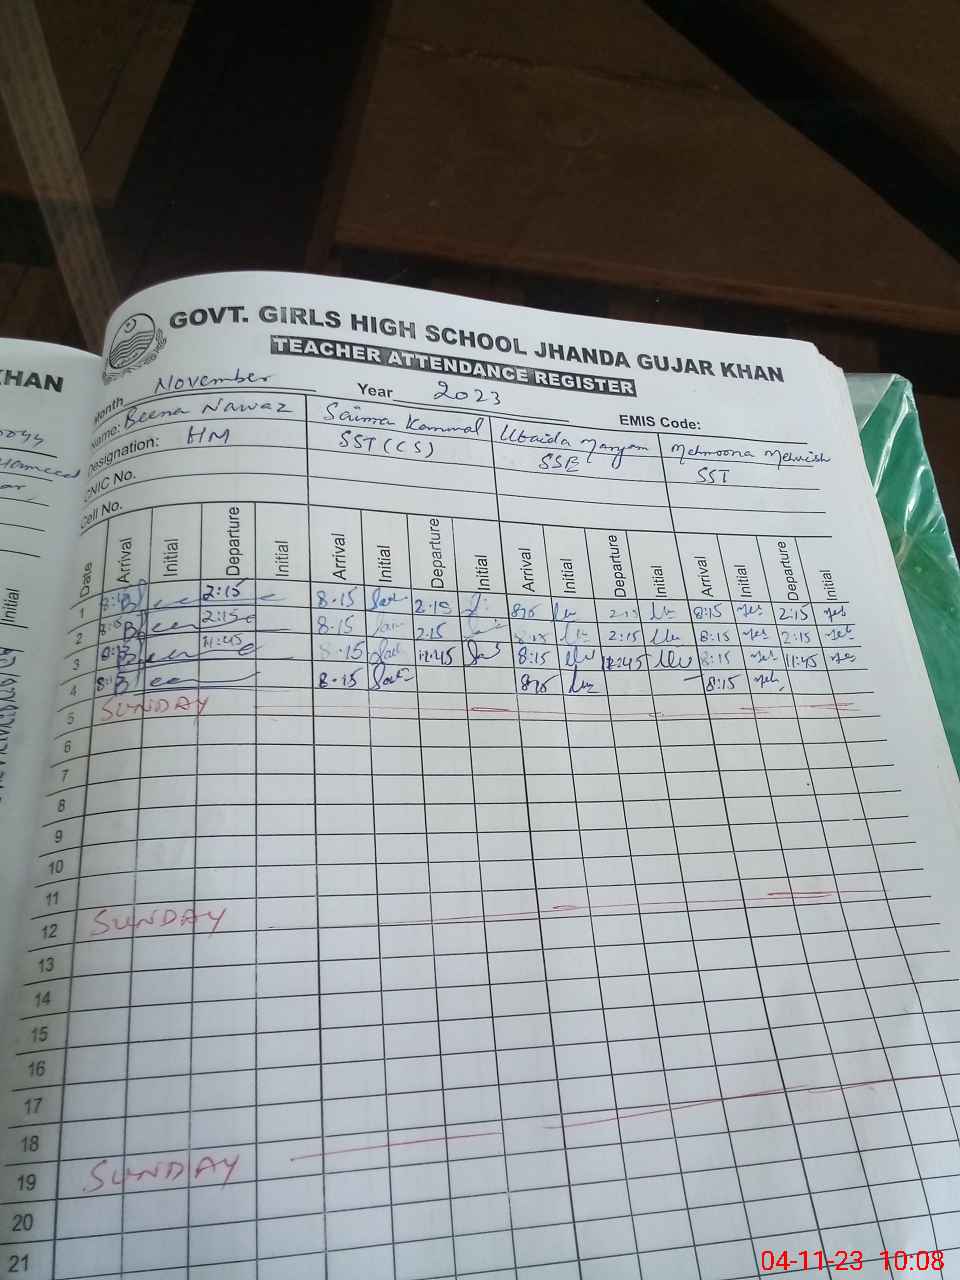 GOVT. GIRLS HIGH SCHOOL JHANDA GUJAR KHAN
TEACHER ATTENDANCE REGISTER
KHAN
Month November Year 2023 EMIS Code:
Name: Beena Nawaz Saima Kammal Ubaida Maryam Mehmoona Mehwish
Designation: HM SST (CS) SSE SST
CNIC No.
Cell No.
Date Arrival Initial Departure Initial Arrival Initial Departure Initial Arrival Initial Departure Initial Arrival Initial Departure Initial
Initial
1 2:15 8.15 2:15 8:15 2:15 8:15 2:15
2 2:15 8.15 2:15 8:15 2:15 8:15 2:15
3 11:45 8.15 11:45 8:15 12:45 8:15 11:45
4 8.15 8:15 8:15
5 SUNDAY
6
7
8
9
10
11
12 SUNDAY
13
14
15
16
17
18
19 SUNDAY
20
21
04-11-23 10:08